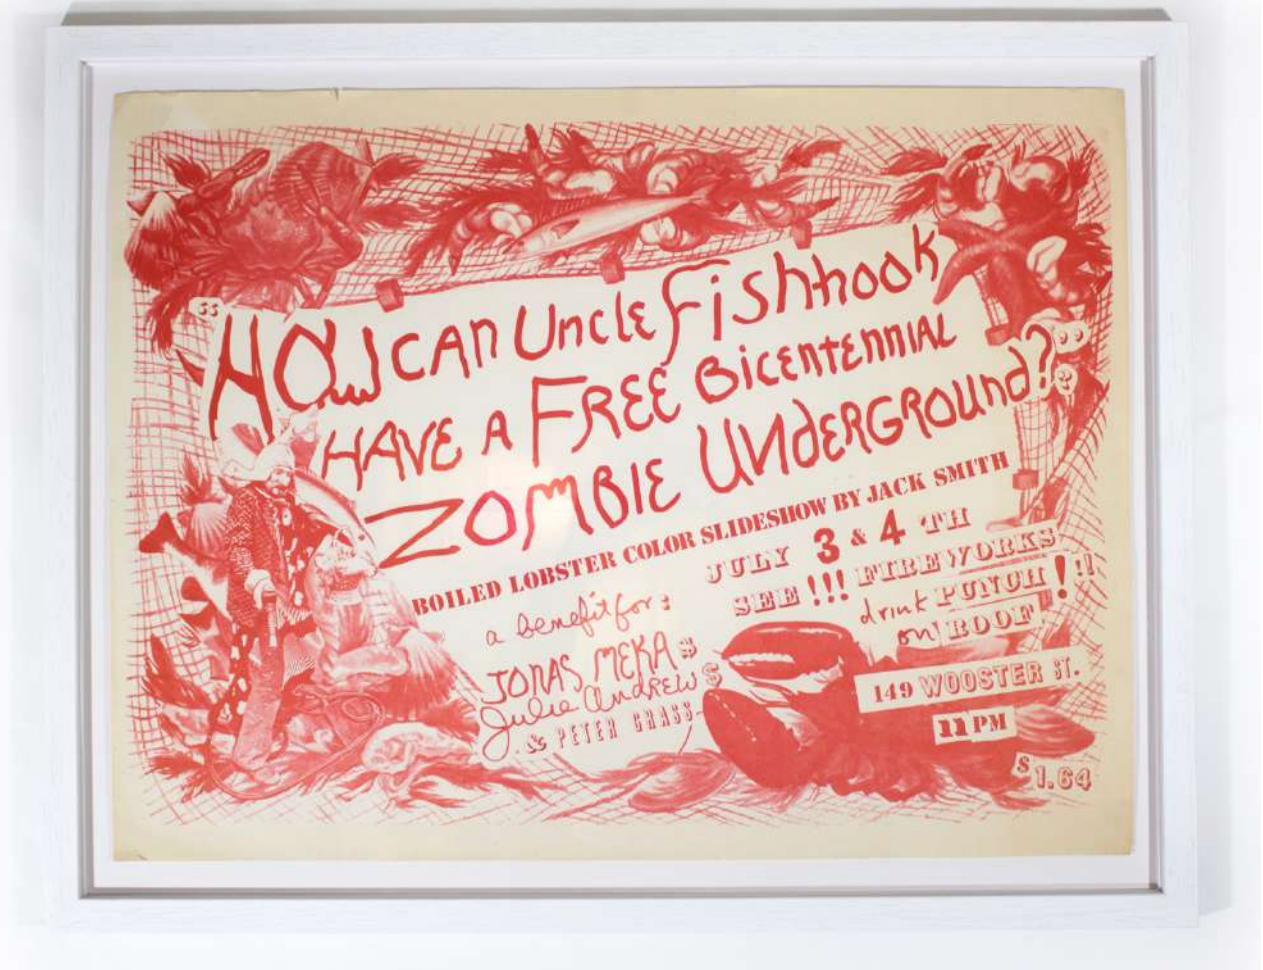 "HOW CAN Uncle Fishhook
HAVE A FREE Bicentennial
ZOMBIE UNdERGROUnd?"?
BOILED LOBSTER COLOR SLIDESHOW BY JACK SMITH
JULY 3 & 4 TH
SEE !!! FIREWORKS
drink PUNCH!!!
on ROOF
a benefit for:
JONAS MEKAS
Julie AndREWS
& PETER GRASS
149 WOOSTER ST.
11 PM
$1.64